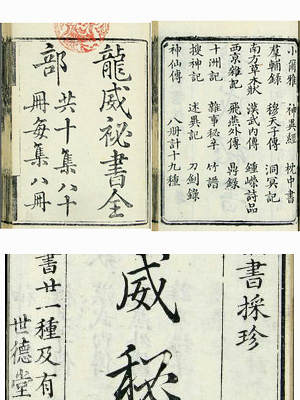 龍威祕書全
部 共十集八十
冊每集八冊
小爾雅 神異經 枕中書
羣輔錄 穆天子傳 洞冥記
南方草木狀 漢武內傳 鍾嶸詩品
西京雜記 飛燕外傳 鼎錄
十洲記 雜事秘辛 竹譜
搜神記 述異記 刀劍錄
神仙傳 八冊計十九種
書採珍
威秘
書廿一種及有
世德堂